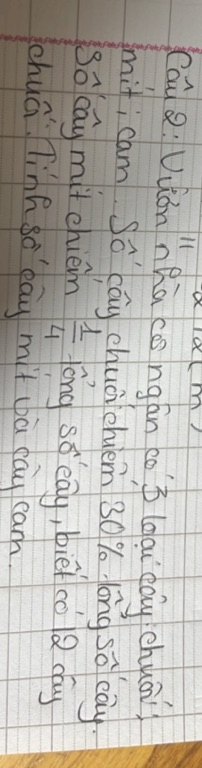 Câu 2: Vườn nhà cô ngân có 3 loại cây: chuối,
mít, cam. Số cây chuối chiếm 30% tổng số cây.
Số cây mít chiếm 1/4 tổng số cây, biết có 12 cây
chuối. Tính số cây mít và cây cam.